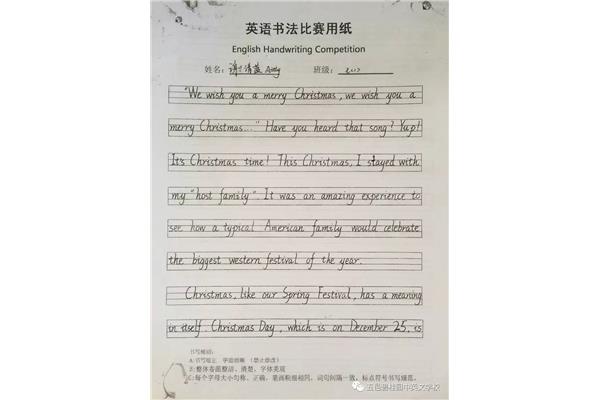 英语书法比赛用纸
English Handwriting Competition
姓名： Amy 班级：
"We wish you a merry Christmas, we wish you a
merry Christmas..." Have you heard that song? Yup!
It's Christmas time! This Christmas, I stayed with
my "host family". It was an amazing experience to
see how a typical American family would celebrate
the biggest western festival of the year.
Christmas, like our Spring Festival, has a meaning
in itself. Christmas Day, which is on December 25, is
书写规则：
A:书写端正，字迹清晰（禁止修改）
B:整体卷面整洁、清楚，字体美观
C:每个字母大小匀称、正确，笔画粗细相同，词句间隔一致，标点符号书写规范。
五邑碧桂园中英文学校